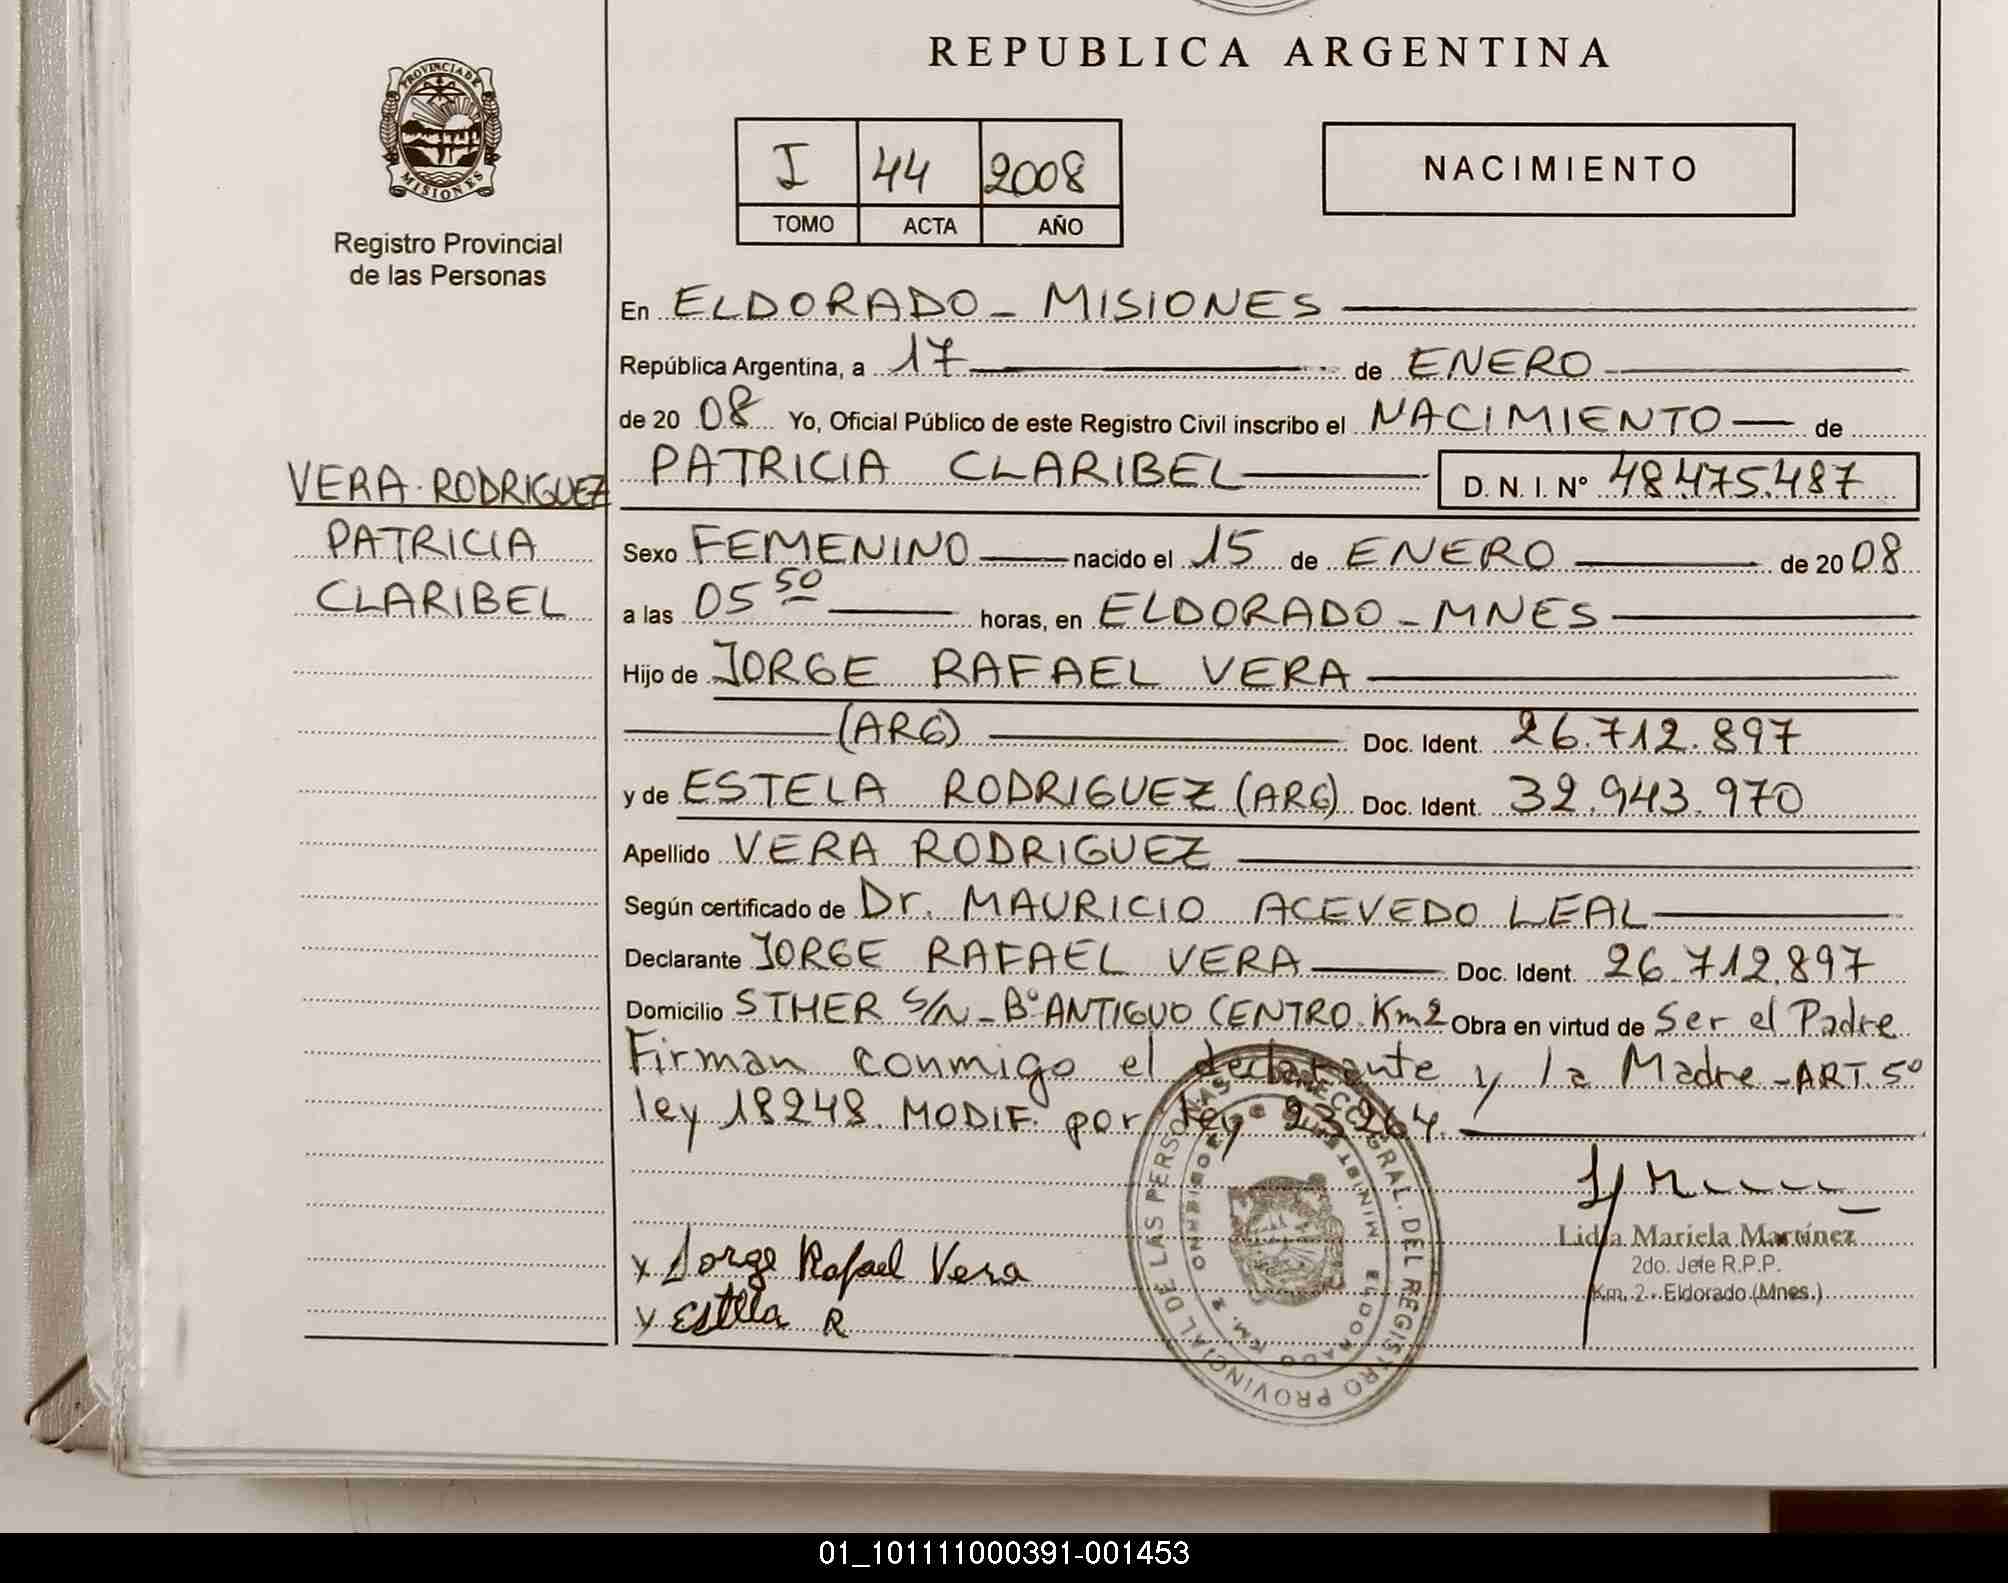 REPUBLICA ARGENTINA
PROVINCIA DE
MISIONES
Registro Provincial
de las Personas
I 44 2008
TOMO ACTA AÑO
NACIMIENTO
En ELDORADO - MISIONES
República Argentina, a 17 de ENERO
de 20 08 Yo, Oficial Público de este Registro Civil inscribo el NACIMIENTO de
PATRICIA CLARIBEL D. N. I. Nº 48.475.487
VERA RODRIGUEZ
PATRICIA
CLARIBEL
Sexo FEMENINO nacido el 15 de ENERO de 20 08
a las 05 50 horas, en ELDORADO - MNES
Hijo de JORGE RAFAEL VERA
(ARG) Doc. Ident. 26.712.897
y de ESTELA RODRIGUEZ (ARG) Doc. Ident. 32.943.970
Apellido VERA RODRIGUEZ
Según certificado de Dr. MAURICIO ACEVEDO LEAL
Declarante JORGE RAFAEL VERA Doc. Ident. 26.712.897
Domicilio STHER S/N - Bº ANTIGUO CENTRO Km2 Obra en virtud de Ser el Padre
Firman conmigo el declarante y la Madre - ART. 5º
ley 18248 MODIF. por ley 23264.
Lidia Mariela Martínez
2do. Jefe R.P.P.
Km. 2 - Eldorado (Mnes.)
x Jorge Rafael Vera
x Estela R
GRAL. DEL REGISTRO PROVINCIAL DE LAS PERSONAS
ELDORADO KM. 2
01_101111000391-001453